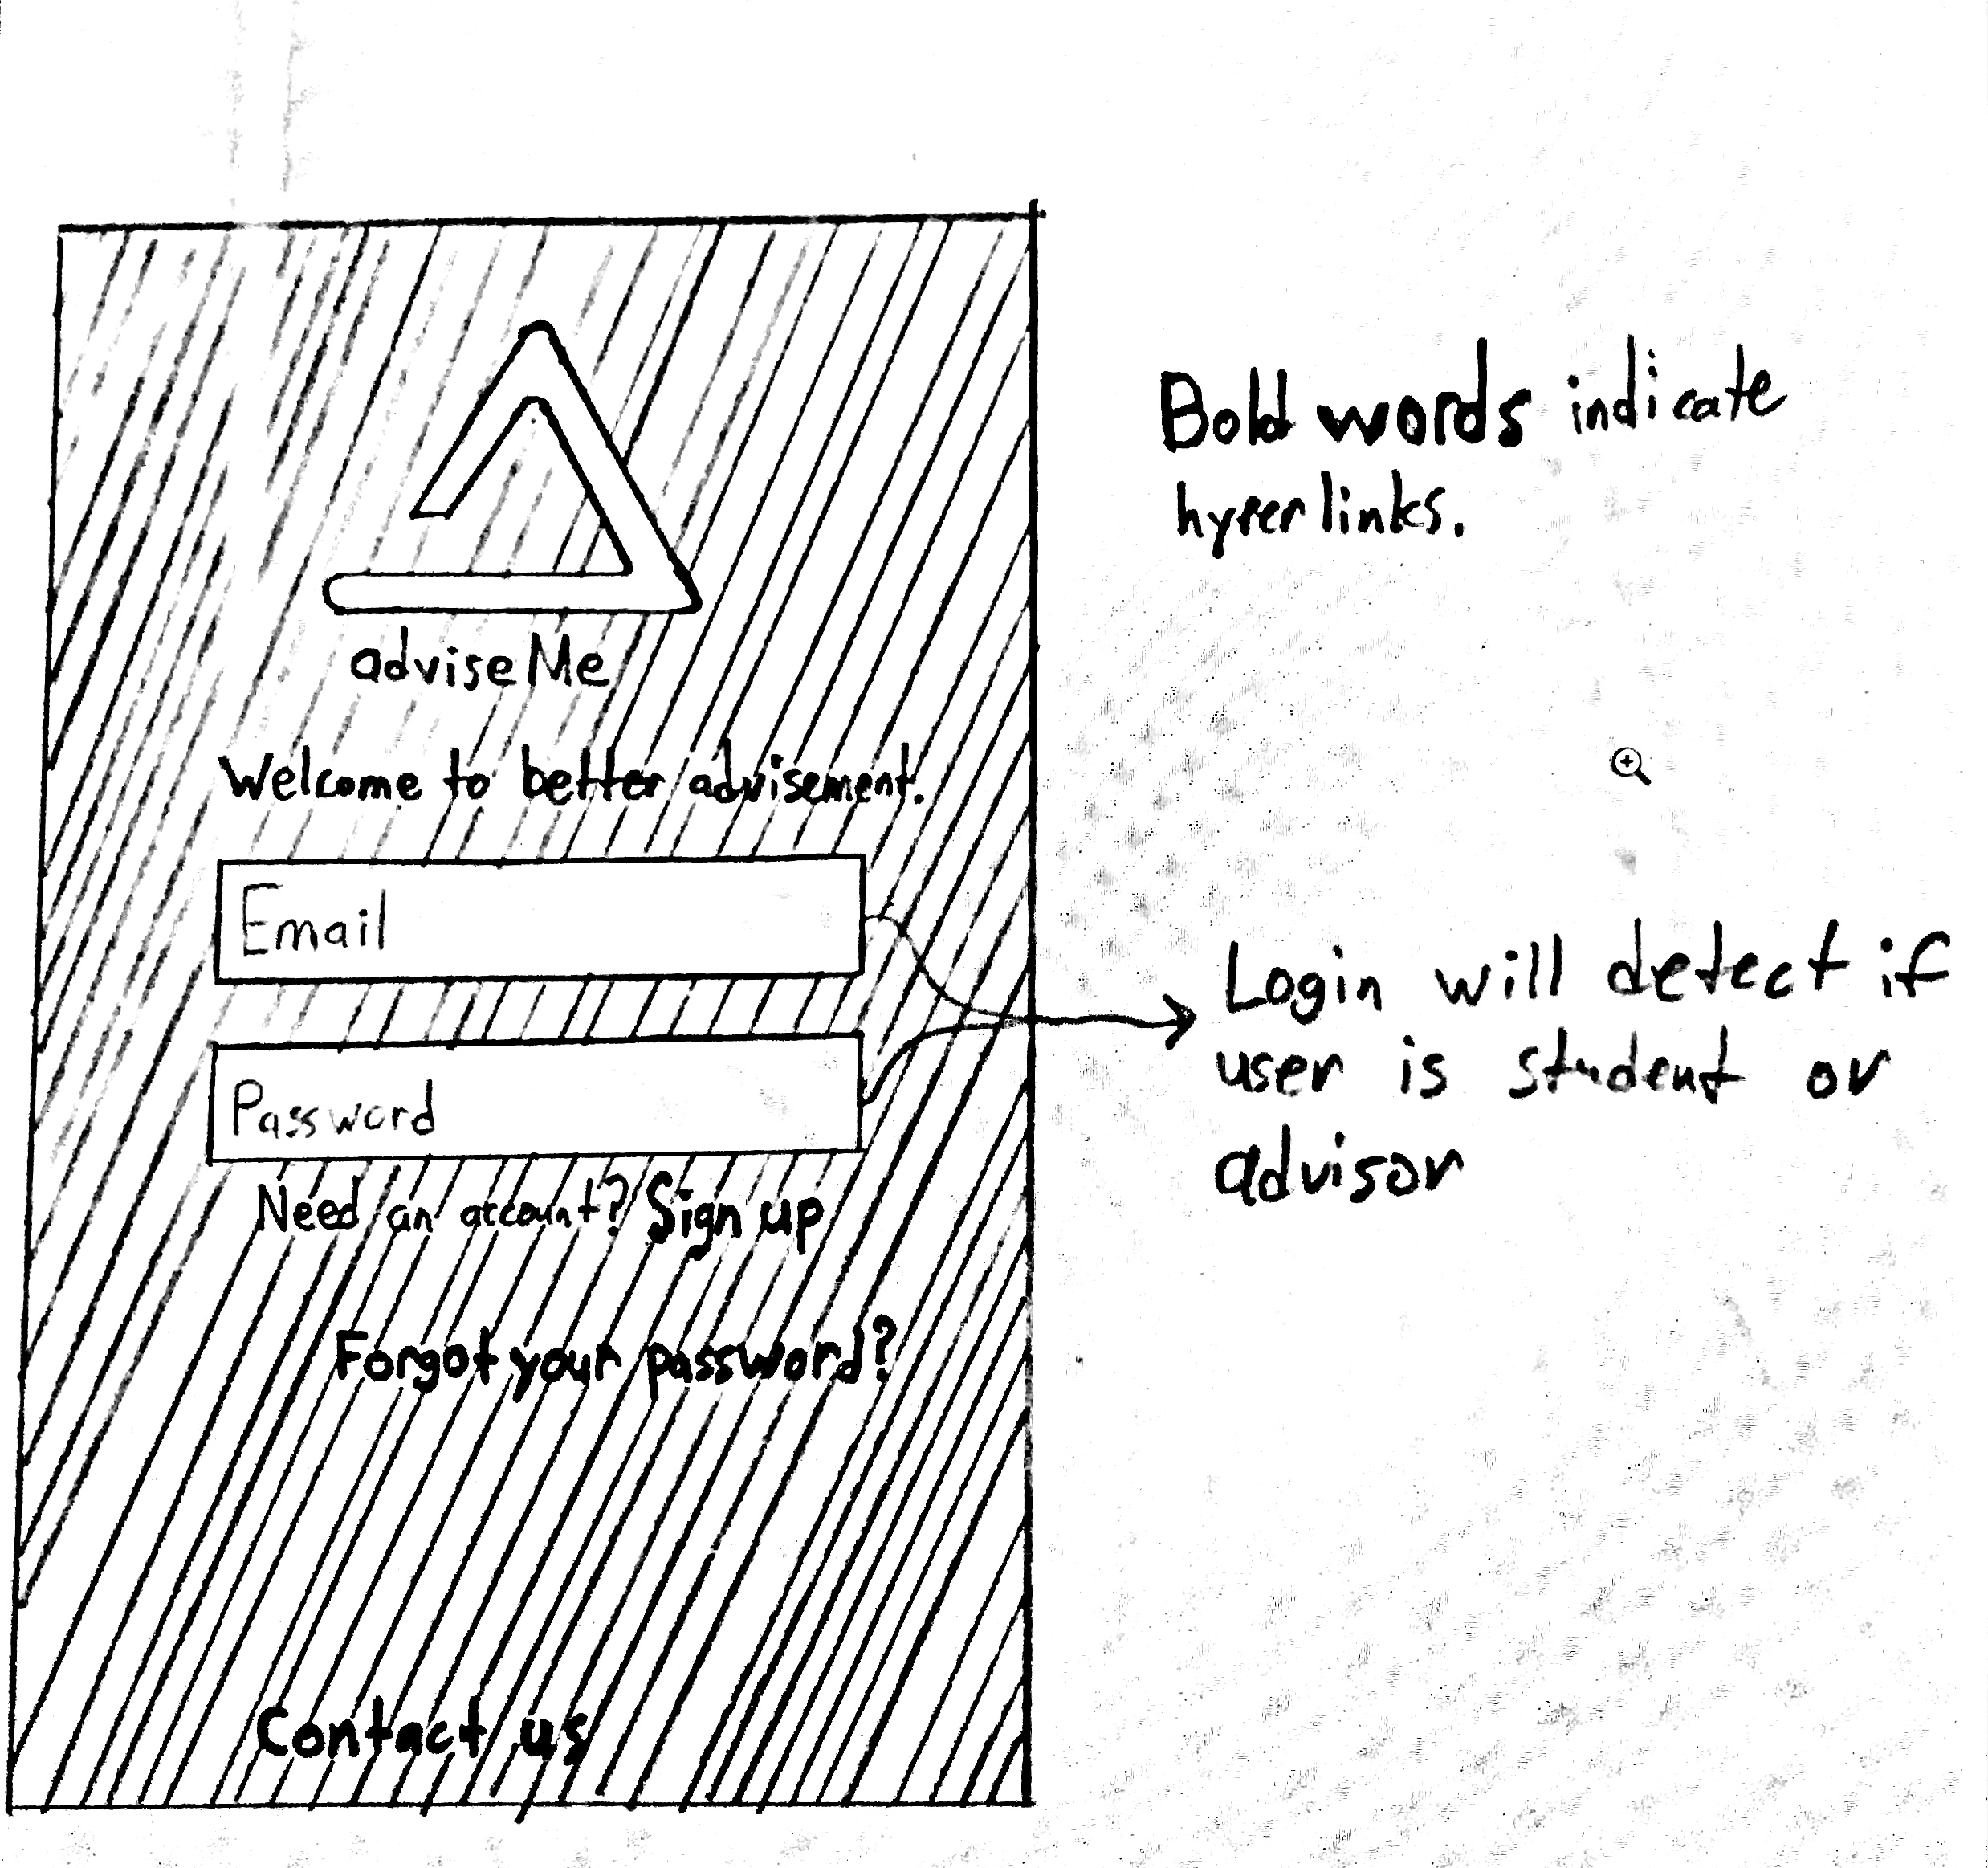 adviseMe
Welcome to better advisement.
Email
Password
Need an account? Sign up
Forgot your password?
Contact us
Bold words indicate
hyperlinks.
Login will detect if
user is student or
advisor